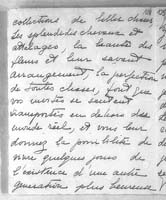 collections de belles choses
les splendides chevaux et
attelages, la beauté des
fleurs et leur savant
arrangement, la perfection
de toutes choses, font que
vos invités se sentent
transportés en dehors du
monde réel, et vous leur
donnez la possibilité de
vivre quelques jours de
l'existence d'une autre
génération plus heureuse